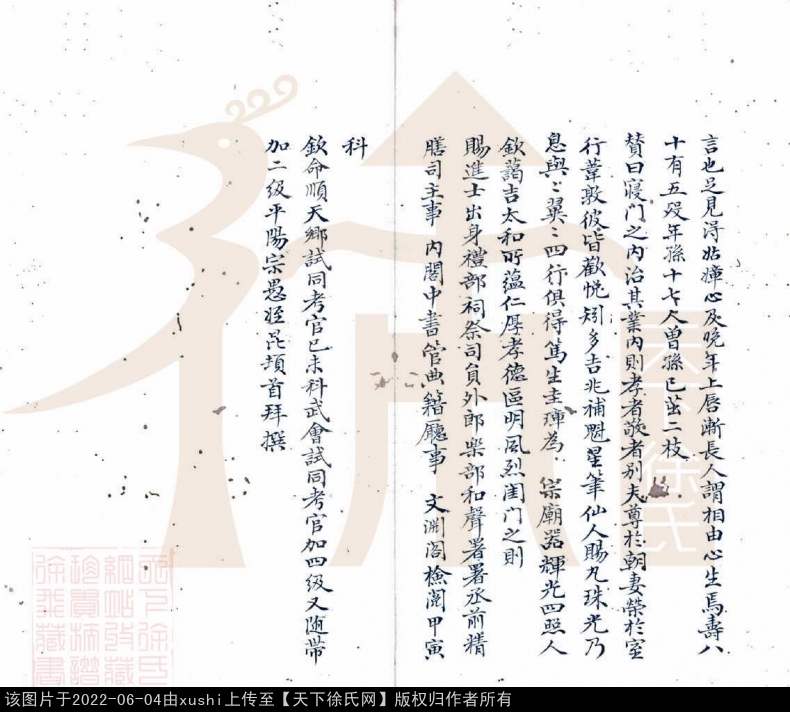 言也足見淂姑嫜心及晚年上唇漸長人謂相由心生焉壽八
十有五殁年孫十七人曾孫已茁二枝
賛曰寝门之内治其業内則孝者敬者别夫尊於朝妻榮於室
行葦敦彼皆歡悦矧多吉兆補魁星筆仙人賜九珠光乃
息與〻翼〻四行俱得篤生圭璋為 宗廟器輝光四照人
欽藹吉太和所蕴仁厚孝德區明風烈闺门之则
賜進士出身禮部祠祭司員外郎樂部和聲署署丞前精
膳司主事 内閣中書管典籍廳事 文渊阁檢閲甲寅
科
欽命順天鄉試同考官已未科武會試同考官加四级又随帶
加二级平陽宗愚姪昆頓首拜撰
天下徐氏
该图片于2022-06-04由xushi上传至【天下徐氏网】版权归作者所有